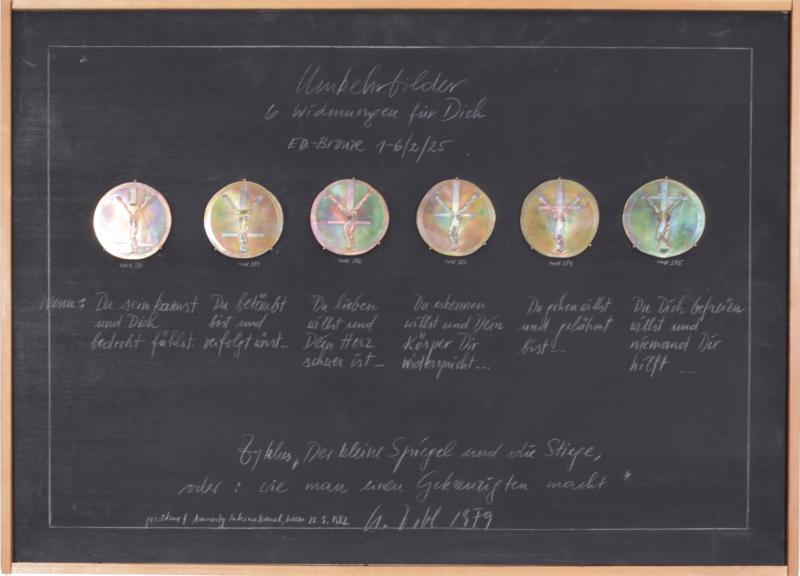 Umkehrbilder
6 Widmungen für Dich
ED-Bronze 1-6/2/25
Wenn: Du sein kannst
und Dich
bedroht fühlst...
Du betäubt
bist und
verfolgt wirst...
Du lieben
willst und
Dein Herz
schwer ist...
Du erkennen
willst und Dein
Körper Dir
widerspricht...
Du gehen willst
und gelähmt
bist...
Du Dich befreien
willst und
niemand Dir
hilft...
Zyklus „Der kleine Spiegel und die Stiege,
oder: wie man einen Gekreuzigten macht"
Amnesty International, Wien 22.5.1982
1979